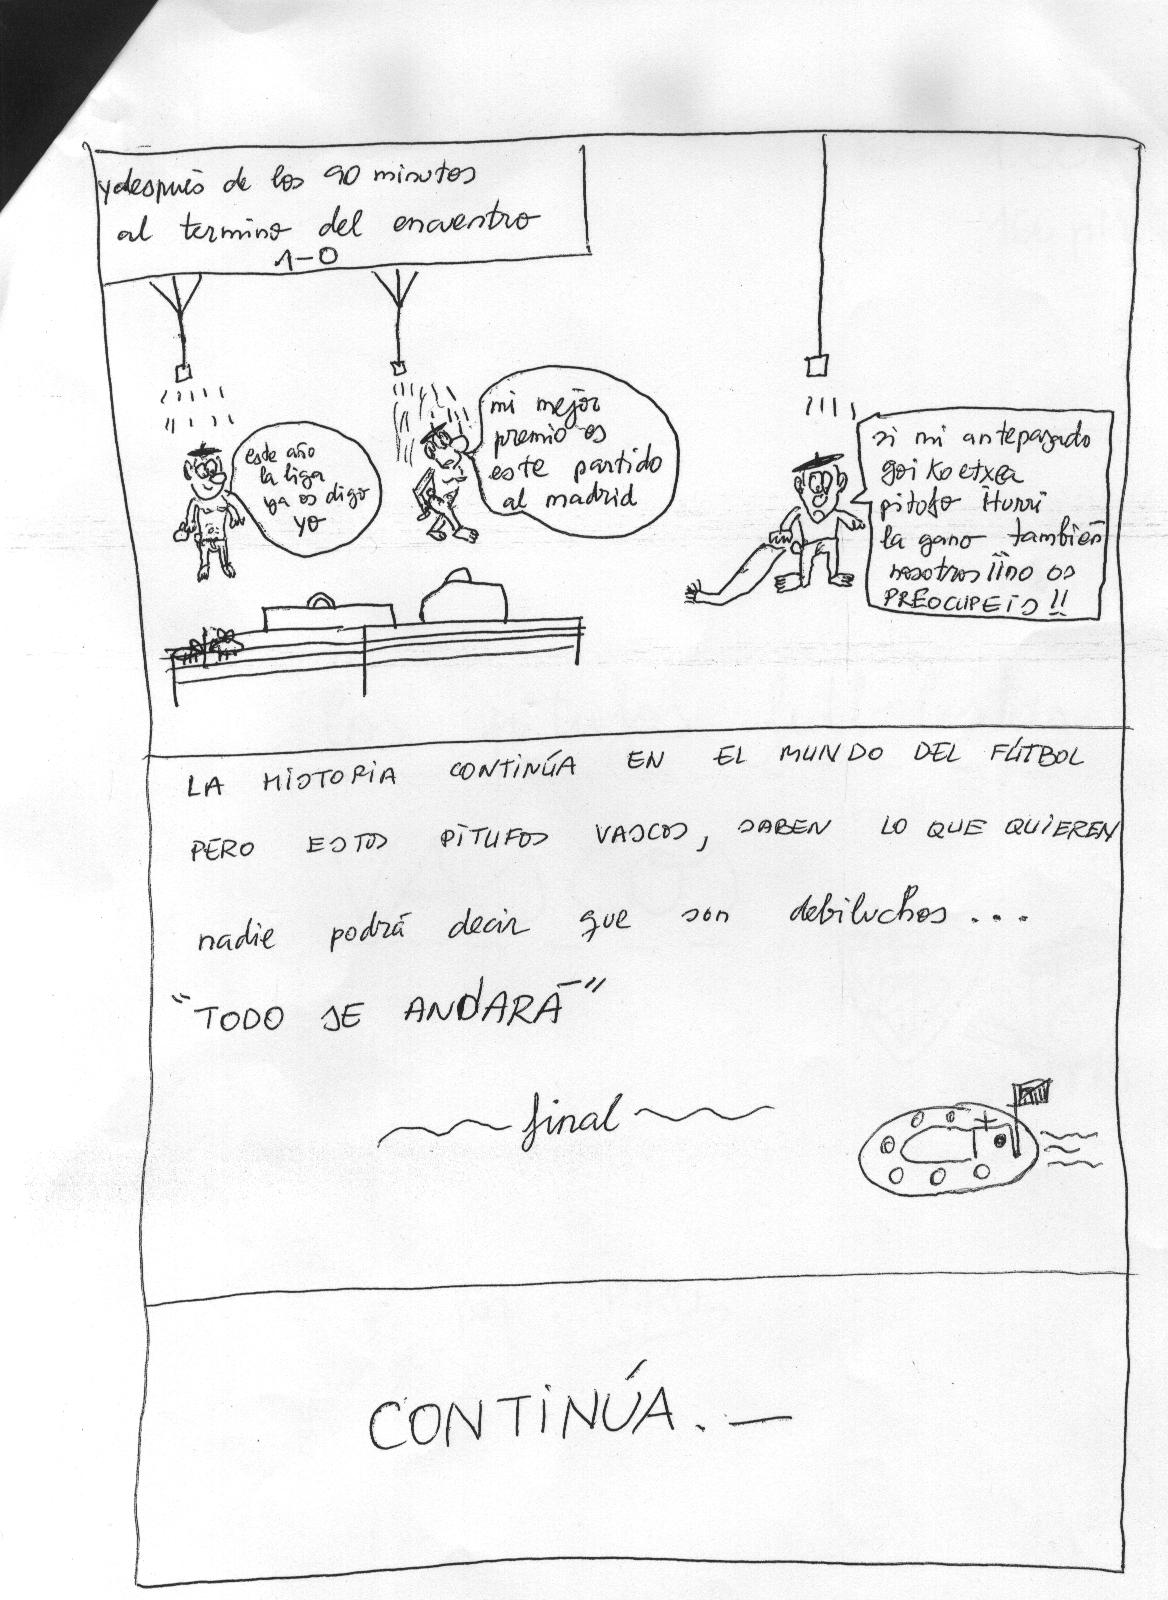 y después de los 90 minutos
al termino del encuentro
1-0
este año
la liga
ya os digo
yo
mi mejor
premio es
este partido
al madrid
si mi antepasado
goikoetxea
pitufo iturri
la gano también
nosotros ¡¡no os
PREOCUPEIS!!
LA HISTORIA CONTINÚA EN EL MUNDO DEL FÚTBOL
PERO ESTOS PITUFOS VASCOS, SABEN LO QUE QUIEREN
nadie podrá decir que son debiluchos...
"TODO SE ANDARÁ"
final
CONTINÚA.—